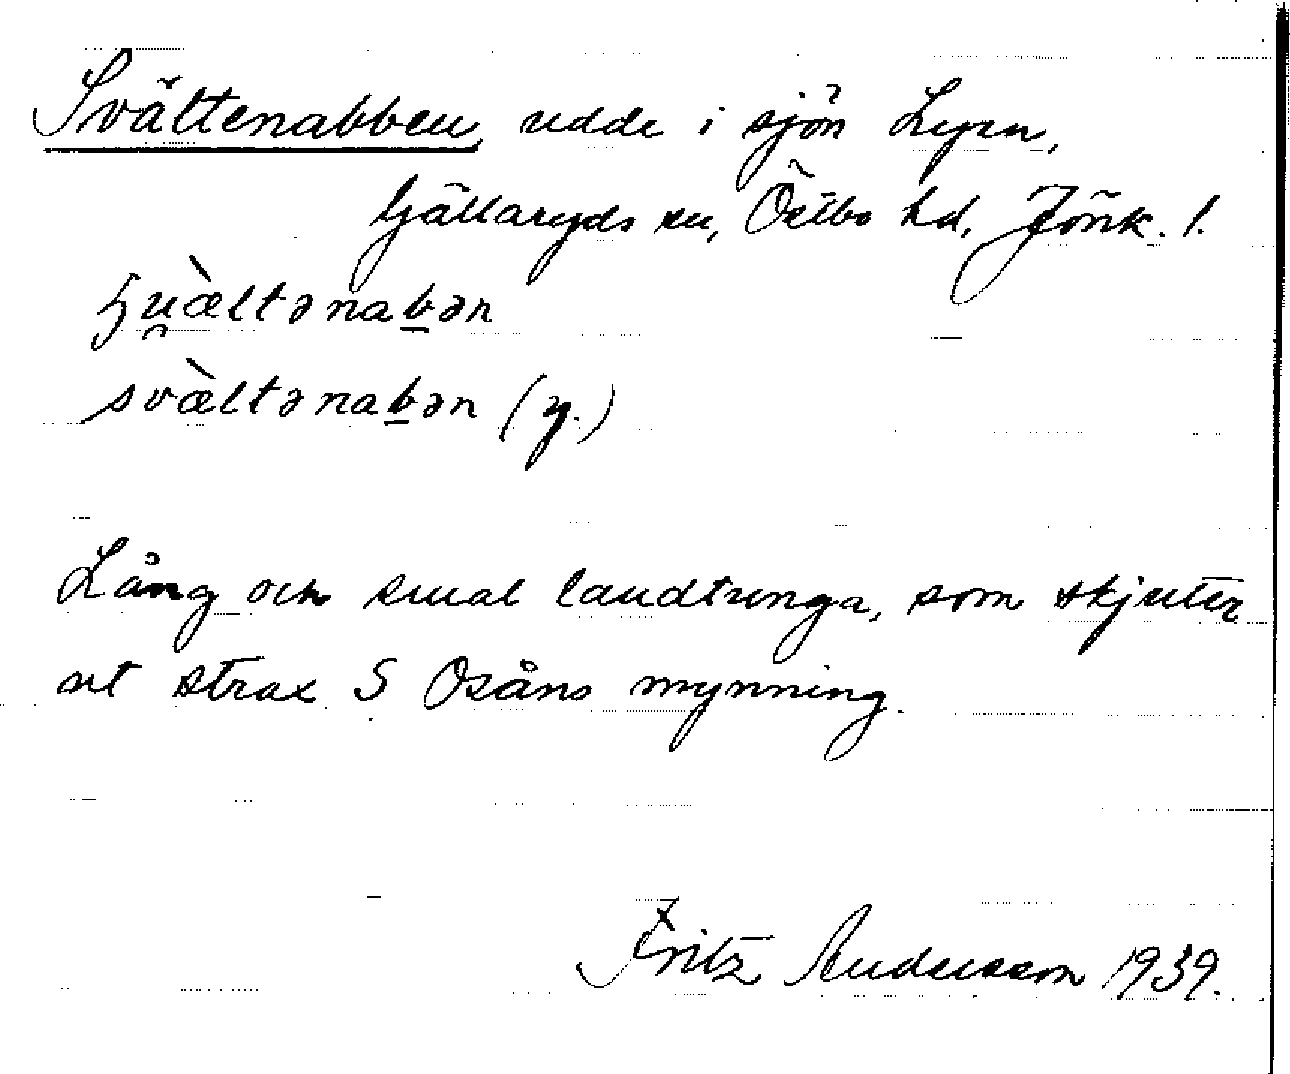 Svältenabben, udde i sjön Lyen,
Gällaryds sn, Östbo hd, Jönk. l.
ɧu̯æ̀ltənabən
svæ̀ltənabən (y.)
Lång och smal landtunga, som skjuter
ut strax S Osåns mynning.
Fritz Andersson 1939.